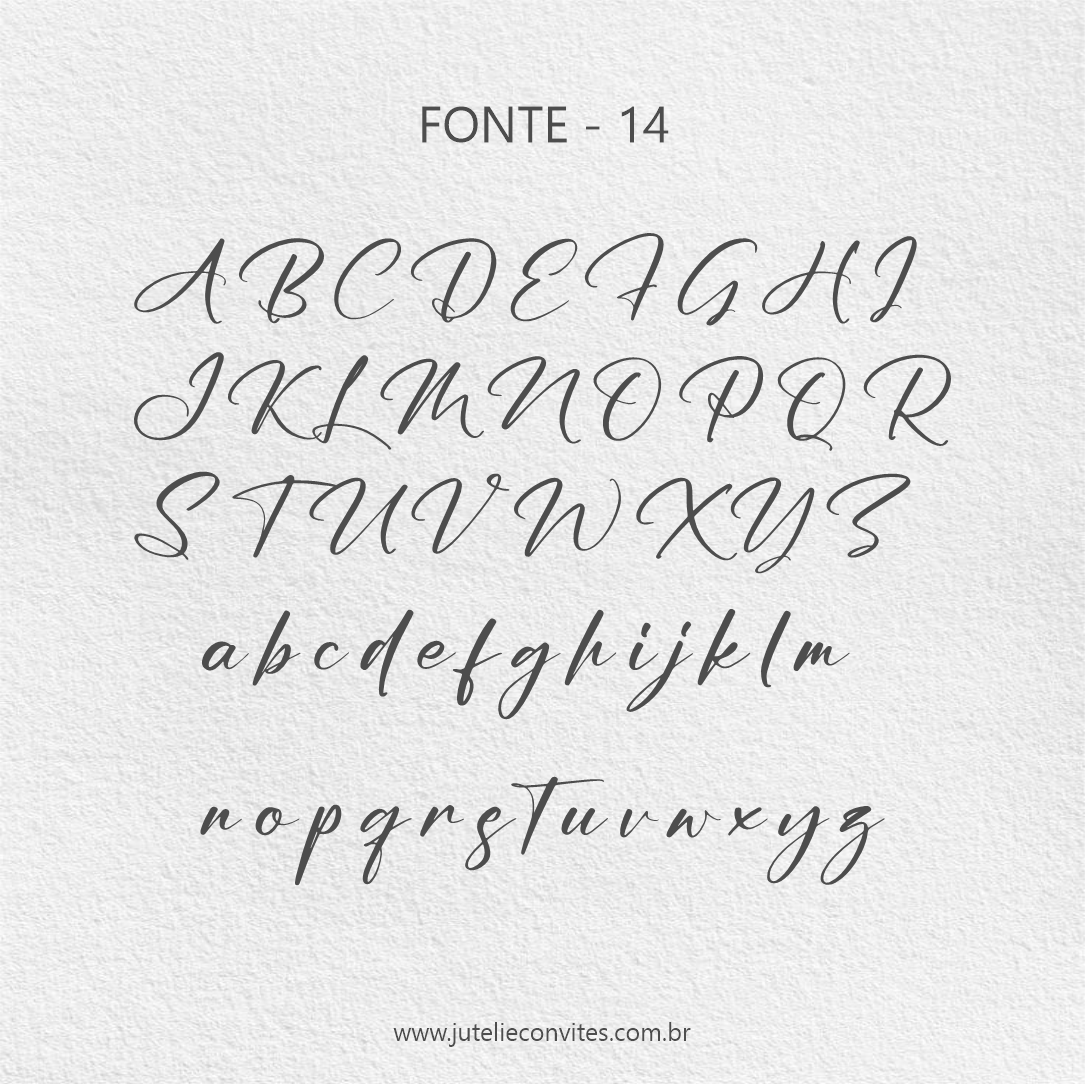 FONTE - 14
A B C D E F G H I
J K L M N O P Q R
S T U V W X Y Z
a b c d e f g h i j k l m
n o p q r s t u v w x y z
www.jutelieconvites.com.br